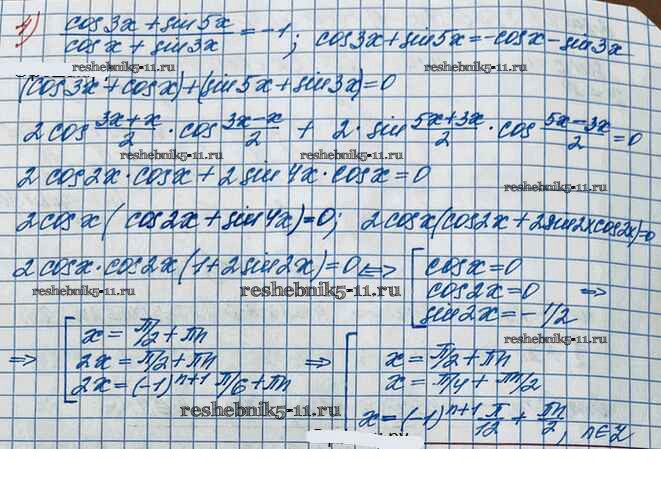 4) cos3x + sin5x / cosx + sin3x = -1; cos3x + sin5x = -cosx - sin3x
reshebnik5-11.ru reshebnik5-11.ru
(cos3x + cosx) + (sin5x + sin3x) = 0
2 cos 3x+x/2 · cos 3x-x/2 + 2 · sin 5x+3x/2 · cos 5x-3x/2 = 0
reshebnik5-11.ru reshebnik5-11.ru
2 cos2x · cosx + 2 sin4x · cosx = 0
reshebnik5-11.ru
2cosx( cos2x + sin4x) = 0; 2cosx(cos2x + 2sin2xcos2x)=0
2cosx · cos2x(1+2sin2x) = 0 <=> [ cosx = 0
reshebnik5-11.ru reshebnik5-11.ru
cos2x = 0 =>
sin2x = -1/2
=> [ x = π/2 + πn => [ x = π/2 + πn
2x = π/2 + πn x = π/4 + πn/2
2x = (-1)ⁿ⁺¹ π/6 + πn x = (-1)ⁿ⁺¹ π/12 + πn/2, n∈Z
reshebnik5-11.ru